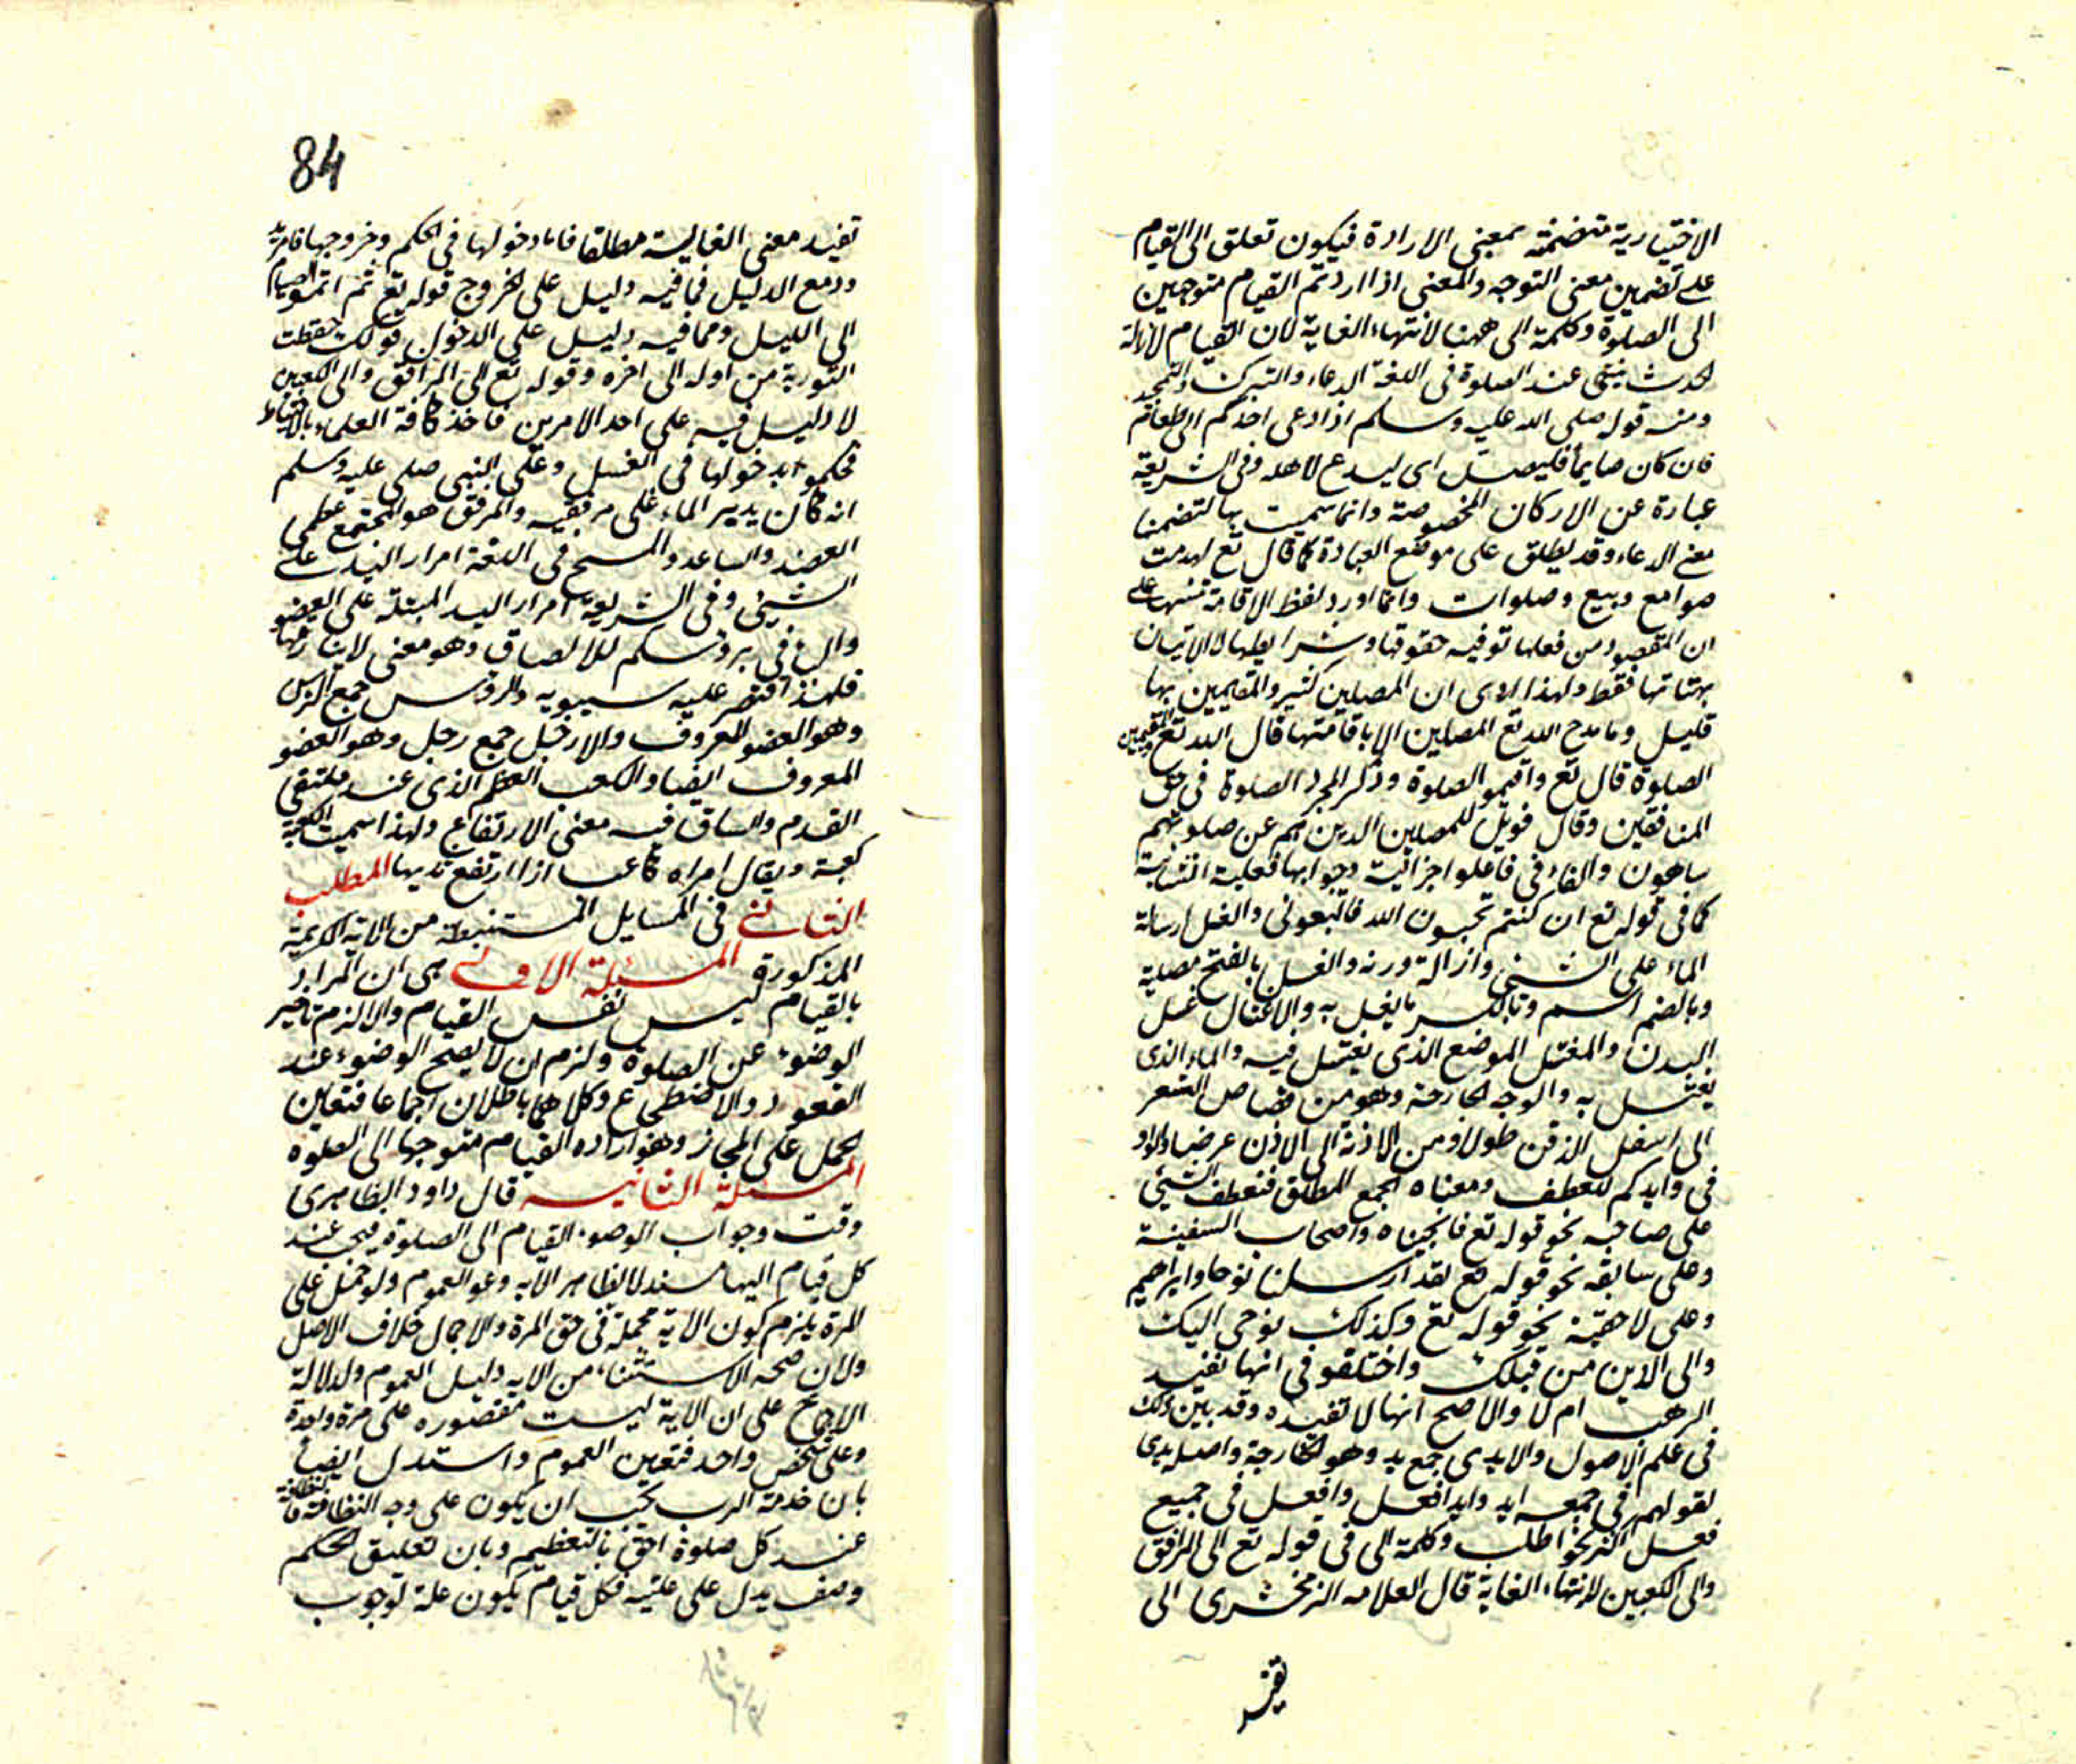 الاختيارية متضمنة بمعنى الارادة فيكون تعلق الى القيام
على تضمين معنى التوجه والمعنى اذا اردتم القيام متوجهين
الى الصلوة وكلمة الى ههنا لانتهاء الغاية لان القيام لازالة
الحدث ينتهى عند الصلوة فى اللغة الدعاء والتبرك والتمجيد
ومنه قوله صلى الله عليه وسلم اذا دعى احدكم الى طعام
فان كان صايما فليصل اى ليدع لاهله وفى الشريعة
عبارة عن الاركان المخصوصة وانما سميت بها لتضمنها
معنى الدعاء وقد يطلق على موضع العبادة كما قال تع لهدمت
صوامع وبيع وصلوات وانما اورد لفظ الاقامة تنبيها على
ان المقصود من فعلها توفيه حقوقها وشرايطها لا الاتيان
بهيئاتها فقط ولهذا روى ان المصلين كثير والمقيمين بها
قليل وما مدح الله تع المصلين الا باقامتها قال الله تع والمقيمين
الصلوة قال تع واقيمو الصلوة وذكر المجرد الصلوة فى حق
المنافقين وقال فويل للمصلين الذين هم عن صلوتهم
ساهون والفاء فى فاغلوا جزائية وجوابها فعلية انشائية
كما فى قوله تع ان كنتم تحبون الله فاتبعونى والغسل ارسالة
الماء على الشئ وازالة درنه والغسل بالفتح مصدرية
وبالضم اسم وبالكسر ما يغسل به والاغتسال غسل
البدن والمغتسل الموضع الذى يغتسل فيه والماء الذى
يغتسل به والوجه الجارحة وهو من قصاص الشعر
الى اسفل الذقن طولا ومن الاذن الى الاذن عرضا والواو
فى وايديكم للعطف ومعناه الجمع المطلق فتعطف الشئ
على صاحبه نحو قوله تع فانجيناه واصحاب السفينة
وعلى سابقه نحو قوله تع لقد ارسلنا نوحا وابراهيم
وعلى لاحقه نحو قوله تع وكذلك يوحى اليك
والى الذين من قبلك واختلفو فى انها تفيد
الترتيب ام لا والاصح انها لا تفيده وقد بين ذلك
فى علم الاصول والايدى جمع يد وهو الجارحة واصله يدى
لقولهم فى جمعه ايد وايد افعل وافعل فى جميع
فعل اكثر نحو اطلب وكلمة الى فى قوله تع الى المرافق
والى الكعبين لانتهاء الغاية قال العلامه الزمخشرى الى
تفيد
84
تفيد معنى الغاية مطلقا فاما دخولها فى الحكم وخروجها فامر يد
ور مع الدليل فما فيه دليل على الخروج قوله تع ثم اتمو الصيام
الى الليل ومما فيه دليل على الدخول قولك حفظت
التورية من اوله الى اخره وقوله تع الى المرافق والى الكعبين
لا دليل فيه على احد الامرين فاخذ كافة العلماء بالاحتياط
فحكموا بدخولها فى الغسل وعلى النبى صلى عليه وسلم
انه كان يدير الماء على مرفقيه والمرفق هو المجتمع عظمى
العضد والساعد والمسح فى اللغة امرار اليد على
الشئ وفى الشريعة امرار اليد المبتلة على العضو
والباء فى برؤسكم للالصاق وهو معنى لا يفارقها
فلهذا اقتصر عليه سيبويه والرؤس جمع الراس
وهو العضو المعروف والارجل جمع رجل وهو العضو
المعروف ايضا والكعب العظم الذى عند ملتقى
القدم والساق فيه معنى الارتفاع ولهذا سميت الكعبة
كعبة ويقال امراه كاعب اذا ارتفع ثديها المطلب
الثانى فى المسايل المستنبطة من الاية الكريمة
المذكورة المسئلة الاولى هى ان المراد
بالقيام ليس نفس القيام والا لزم تاخير
الوضوء عن الصلوة ولزم ان لا يصح الوضوء عند
القعود والاضطجاع وكلاهما باطلان اجماعا فتعين
الحمل على المجاز وهو اراده القيام متوجها الى الصلوه
المسئلة الثانيه قال داود الظاهرى
وقت وجواب الوضوء القيام الى الصلوة فيجب عند
كل قيام اليها مستدلا لظاهر الايه وهو العموم ولو حمل على
المرة يلزم كون الاية مجملة فى حق المرة والاجمال خلاف الاصل
ولان صحه الاستثناء من الايه دليل العموم ولدلالة
الاجماع على ان الاية ليست مقصوره على مرة واحدة
وعلى شخص واحد فتعين العموم واستدل ايضا
بان خدمة الرب يجب ان يكون على وجه النظافة فالنظافة
عند كل صلوة احق بالتعظيم وبان تعليق الحكم
وصف يدل على عليته فكل قيام يكون علة لوجوب